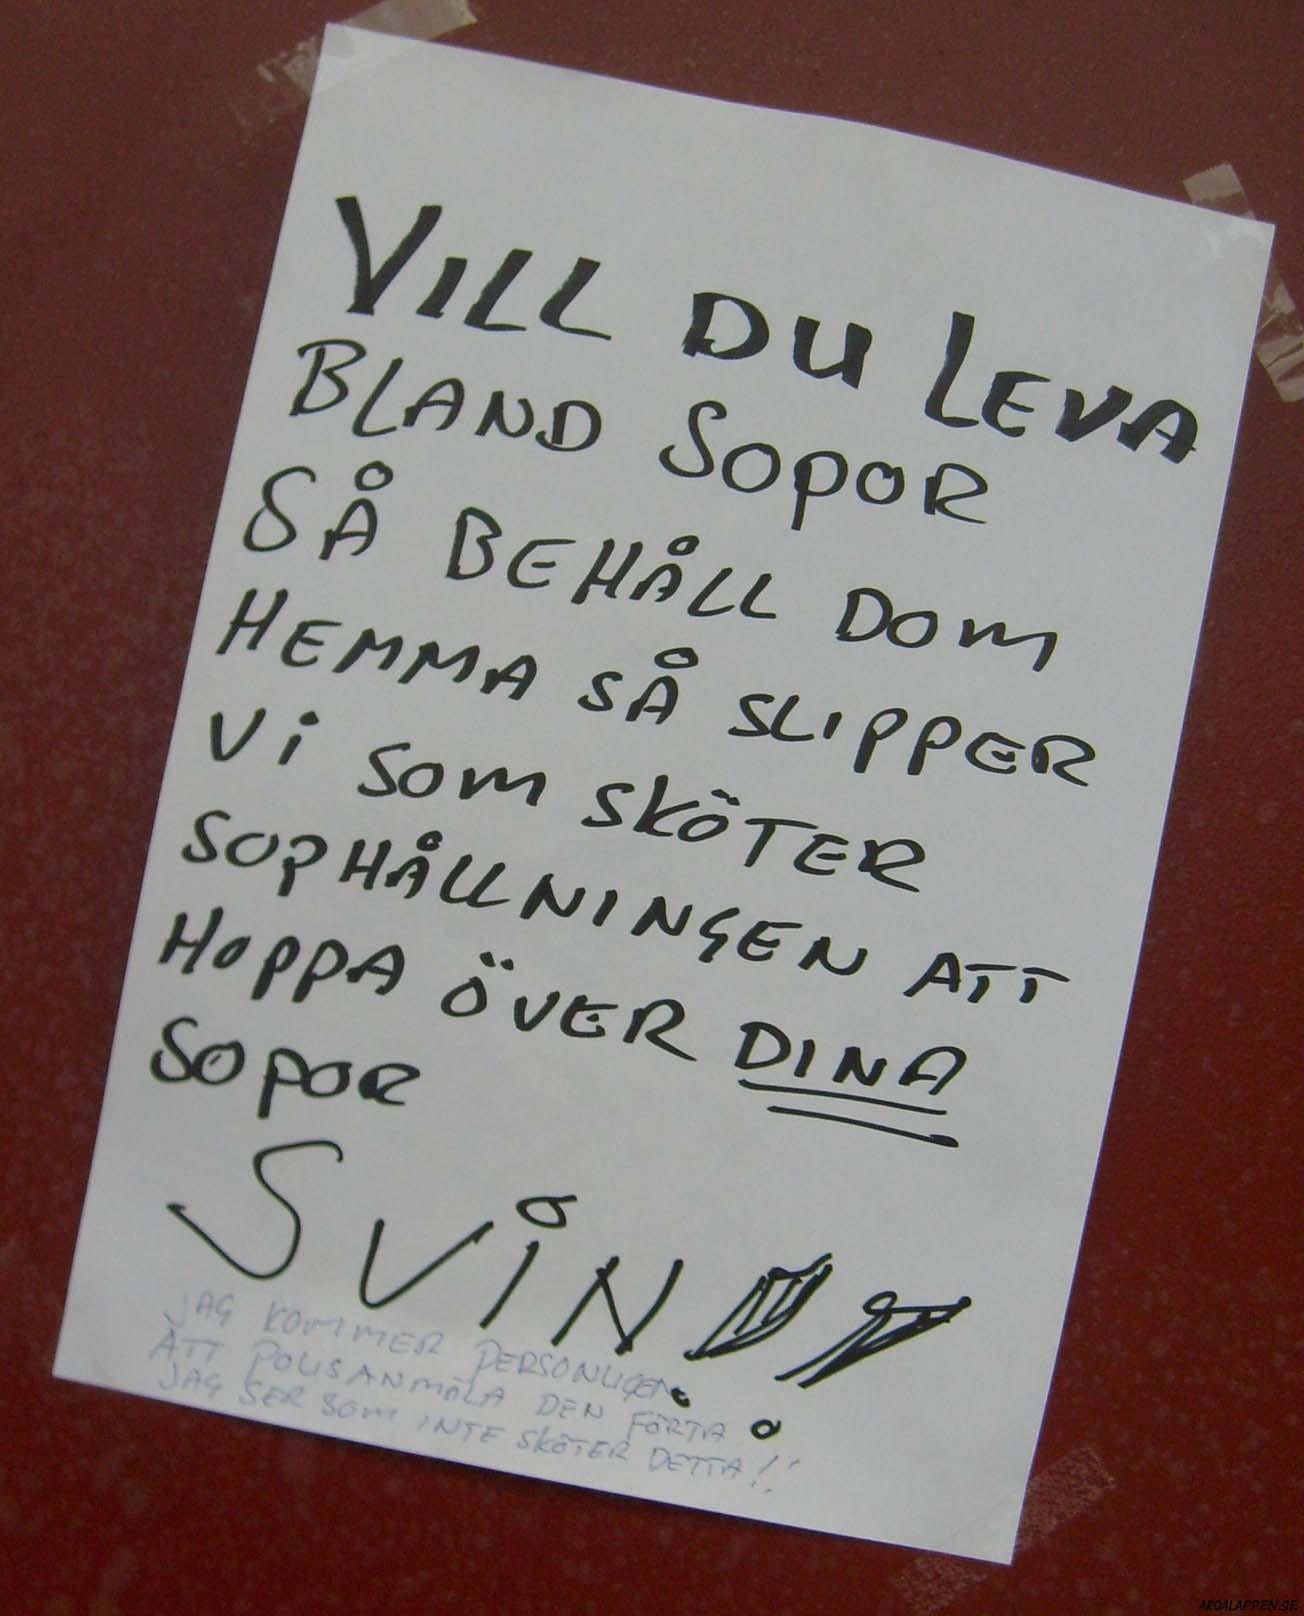 VILL DU LEVA
BLAND SOPOR
SÅ BEHÅLL DOM
HEMMA SÅ SLIPPER
Vi SOM SKÖTER
SOPHÅLLNINGEN ATT
HOPPA ÖVER DINA
SOPOR
SVIN!!
JAG KOMMER PERSONLIGEN
ATT POLISANMÄLA DEN FÖRTA
JAG SER SOM INTE SKÖTER DETTA!!
ARGALAPPEN.SE